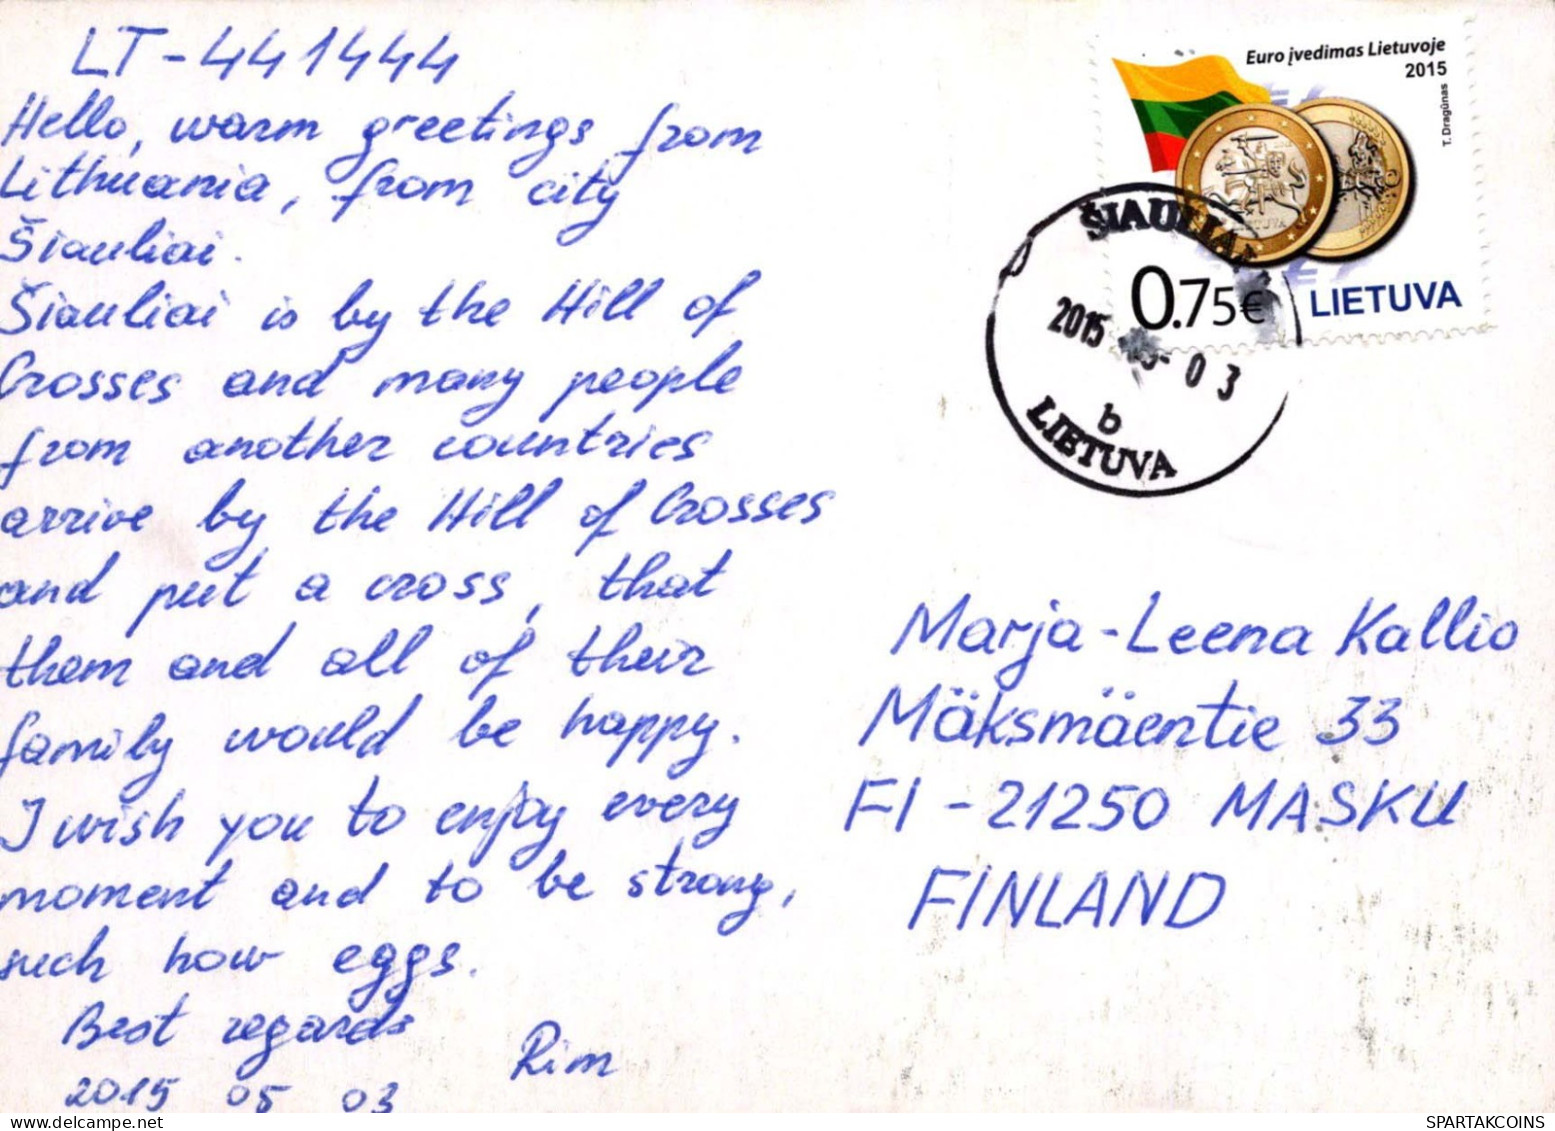 LT-441444
Hello, warm greetings from
Lithuania, from city
Šiauliai.
Šiauliai is by the Hill of
Crosses and many people
from another countries
arrive by the Hill of Crosses
and put a cross, that
them and all of their
family would be happy.
I wish you to enjoy every
moment and to be strong,
such how eggs.
Best regards
Rim
2015 05 03
Euro įvedimas Lietuvoje
2015
T. Dragūnas
0.75€
LIETUVA
ŠIAULIAI
2015 03
b
LIETUVA
Marja-Leena Kallio
Mäksmäentie 33
FI-21250 MASKU
FINLAND
SPARTAKCOINS